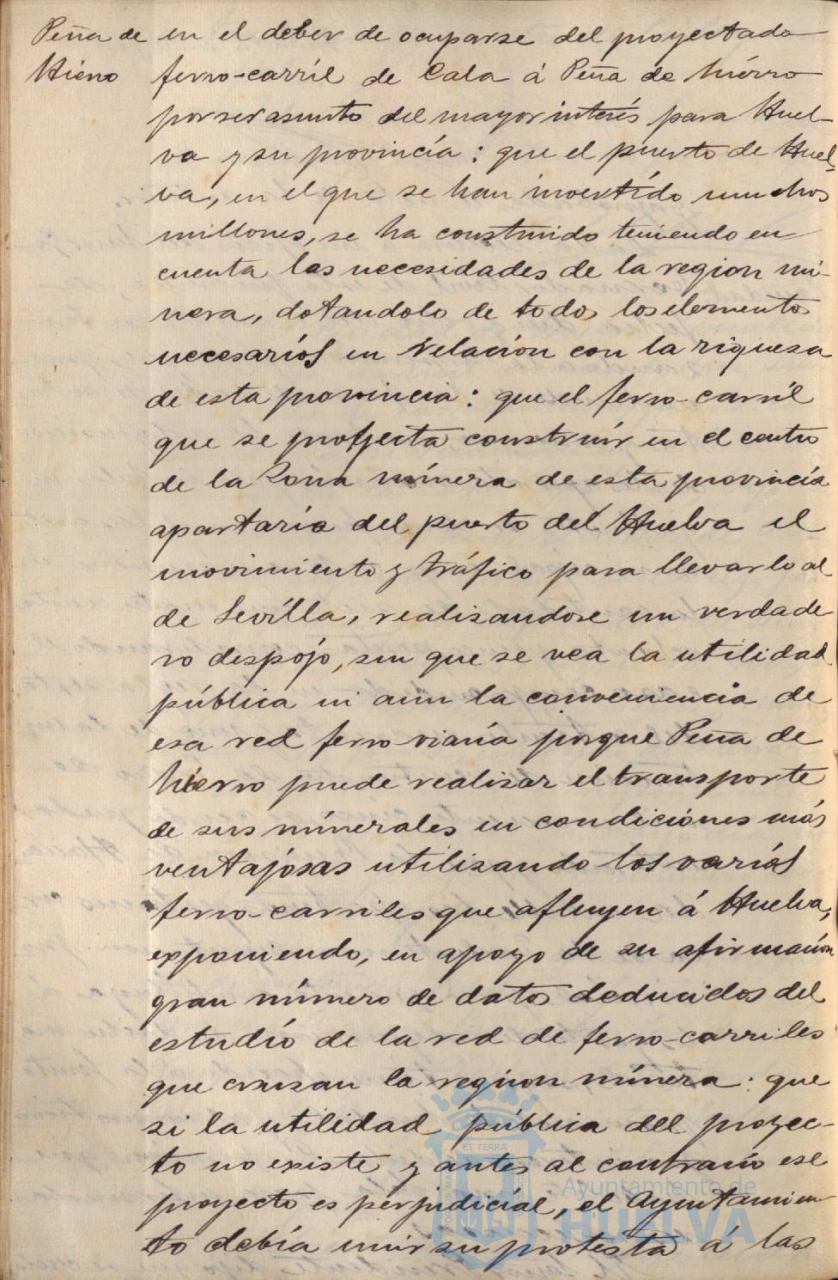 Peña de
Hierro
en el deber de ocuparse del proyectado
ferro-carril de Cala á Peña de hierro
por ser asunto del mayor interés para Huel-
va y su provincia: que el puerto de Huel-
va, en el que se han invertido muchos
millones, se ha construido teniendo en
cuenta las necesidades de la region mi-
nera, dotandolo de todos los elementos
necesarios en relacion con la riquesa
de esta provincia: que el ferro-carril
que se proyecta construir en el centro
de la Zona minera de esta provincia
apartaria del puerto del Huelva el
movimiento y tráfico para llevarlo al
de Sevilla, realisandose un verdade
ro despojo, sin que se vea la utilidad
pública ni aun la conveniencia de
esa red ferro viaria porque Peña de
hierro puede realizar el transporte
de sus minerales en condiciones más
ventajosas utilisando los varios
ferro-carriles que afluyen á Huelva,
exponiendo, en apoyo de su afirmación
gran número de datos deducidos del
estudio de la red de ferro-carriles
que crusan la region minera: que
si la utilidad pública del proyec-
to no existe y antes al contrario ese
proyecto es perjudicial, el Ayuntamien
to debía unir su protesta á las
ET TERRA
Ayuntamiento de
HUELVA